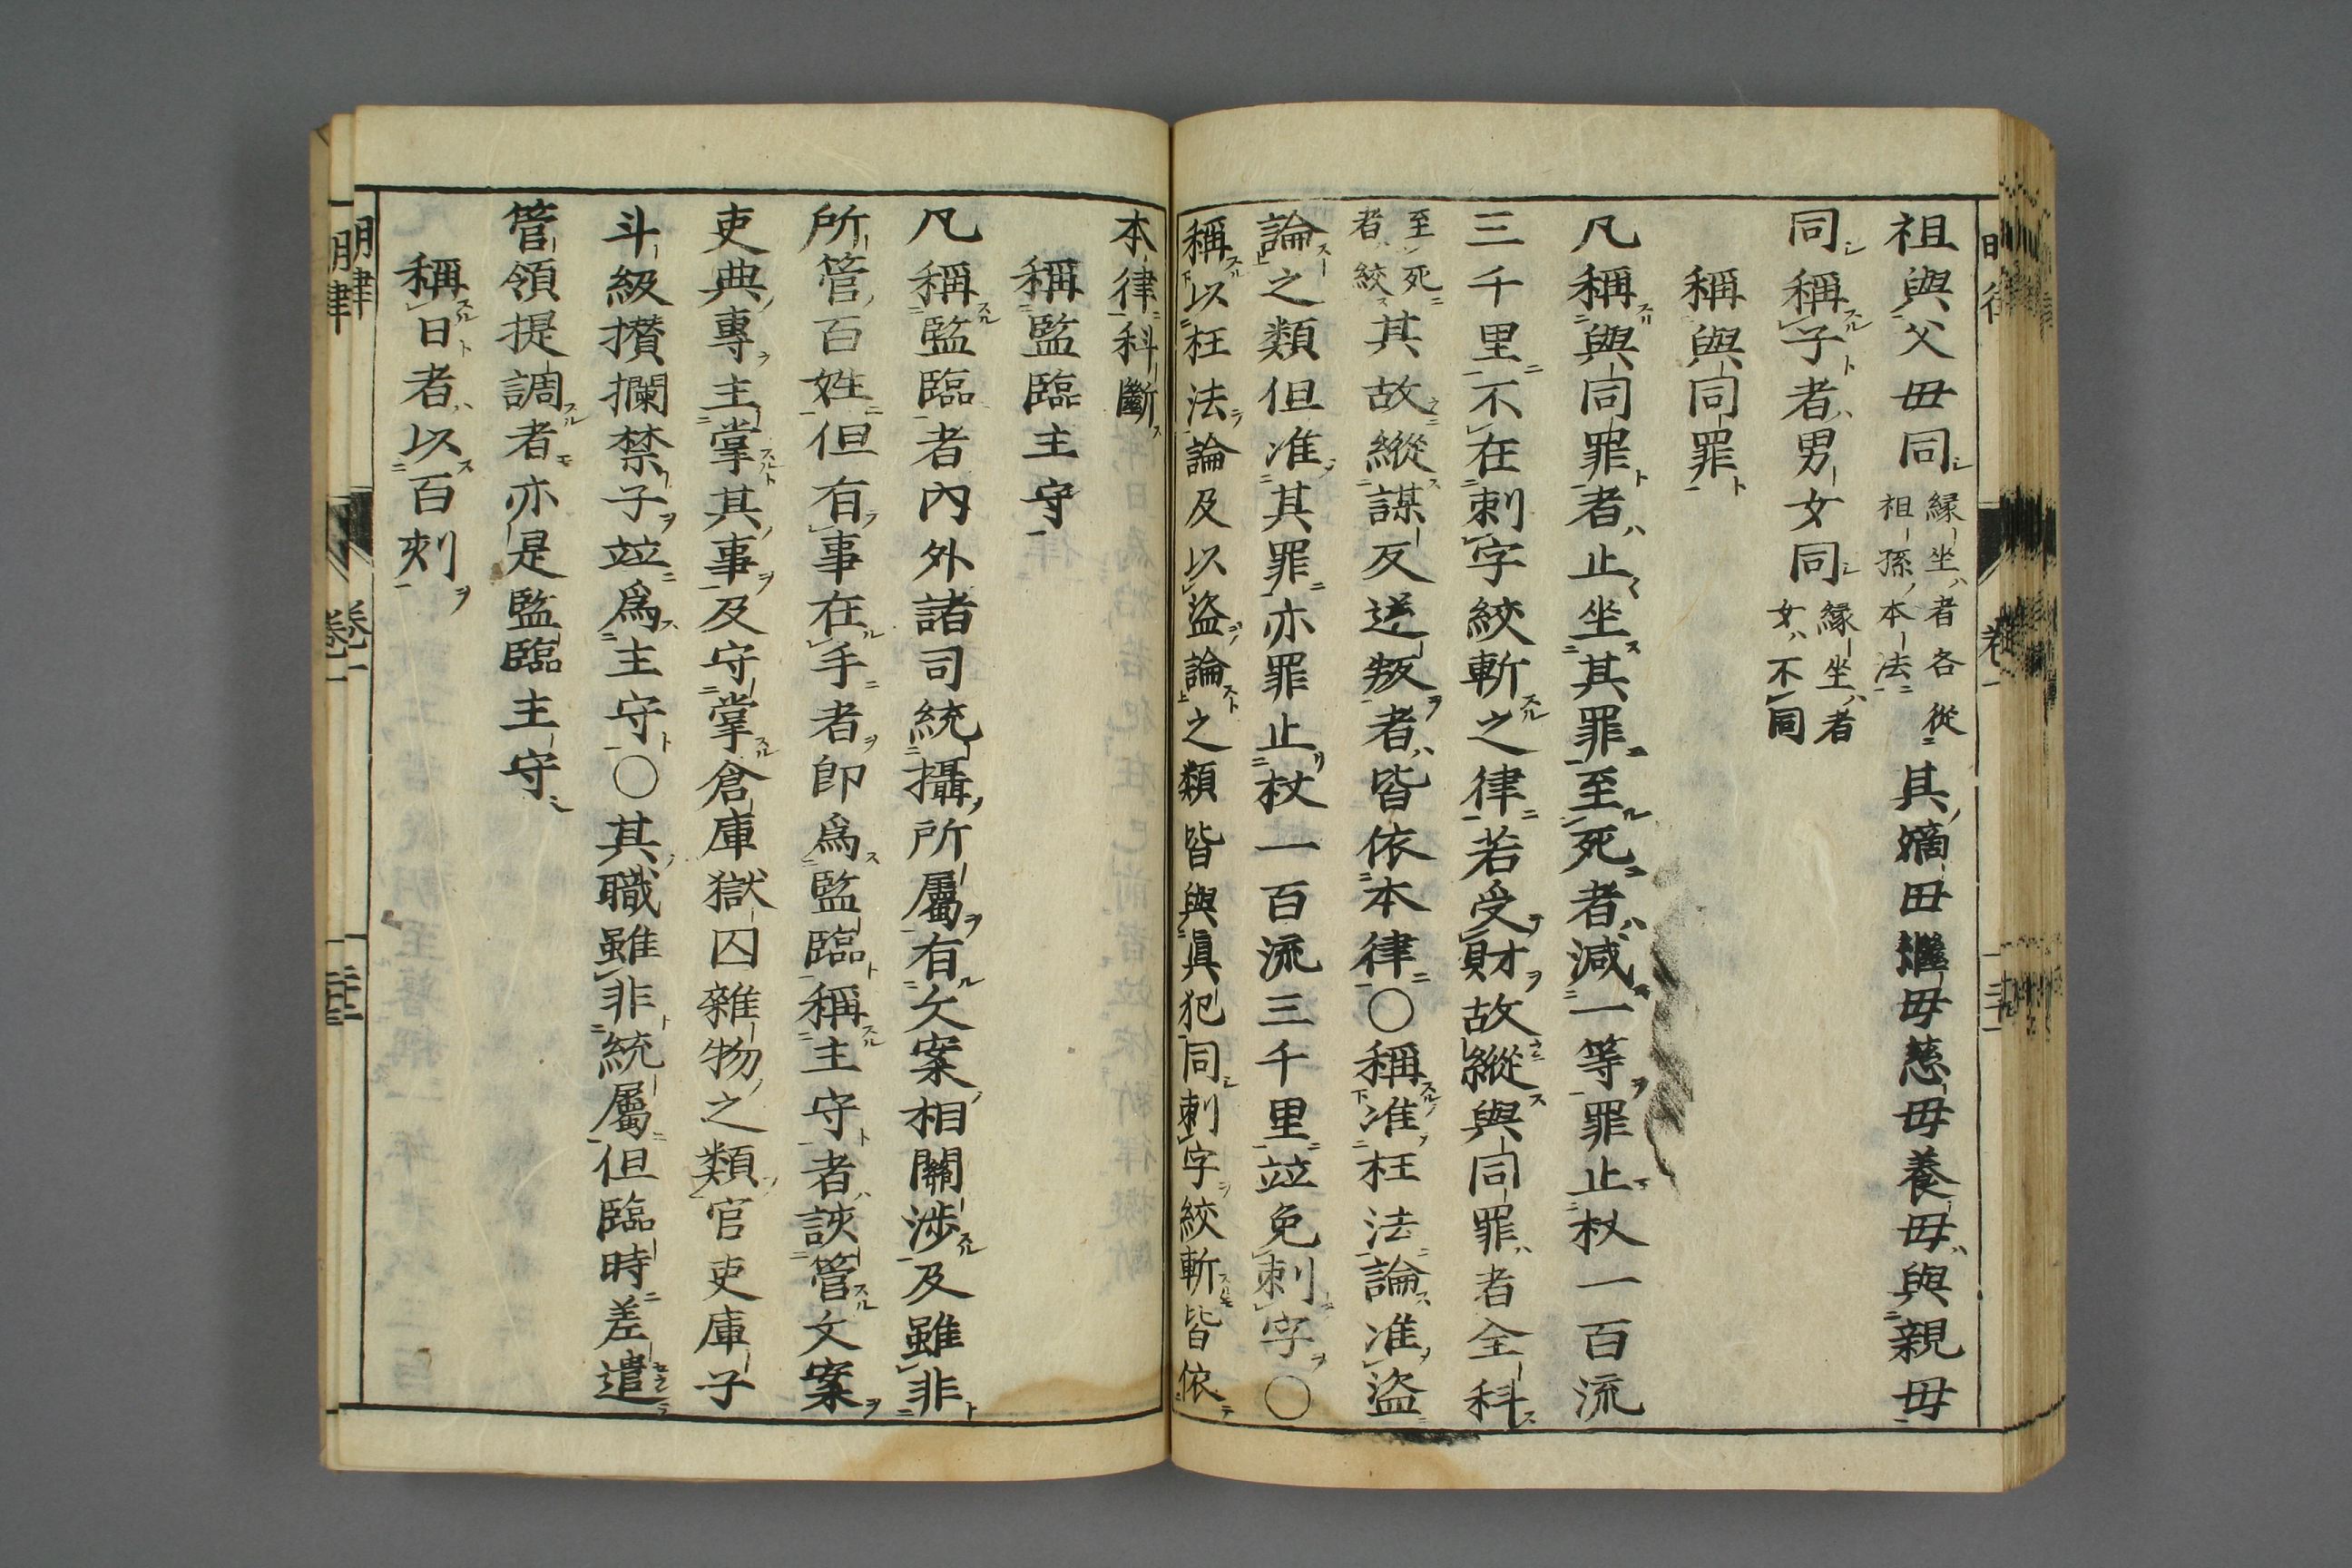 祖與父母同縁坐者各從祖孫本法其嫡母繼母慈母養母與親母
同稱子者男女同縁坐者女不同
稱與同罪
凡稱與同罪者止坐其罪至死者減一等罪止杖一百流
三千里不在刺字絞斬之律若受財故縱與同罪者全科
至死者絞其故縱謀反逆叛者皆依本律〇稱准枉法論准盜
論之類但准其罪亦罪止杖一百流三千里竝免刺字〇
稱以枉法論及以盜論之類皆與眞犯同刺字絞斬皆依
本律科斷
稱監臨主守
凡稱監臨者內外諸司統攝所屬有文案相關涉及雖非
所管百姓但有事在手者即爲監臨稱主守者該管文案
吏典專主掌其事及守掌倉庫獄囚雜物之類官吏庫子
斗級攢攔禁子竝爲主守〇其職雖非統屬但臨時差遣
管領提調者亦是監臨主守
稱日者以百刻
明律
卷一